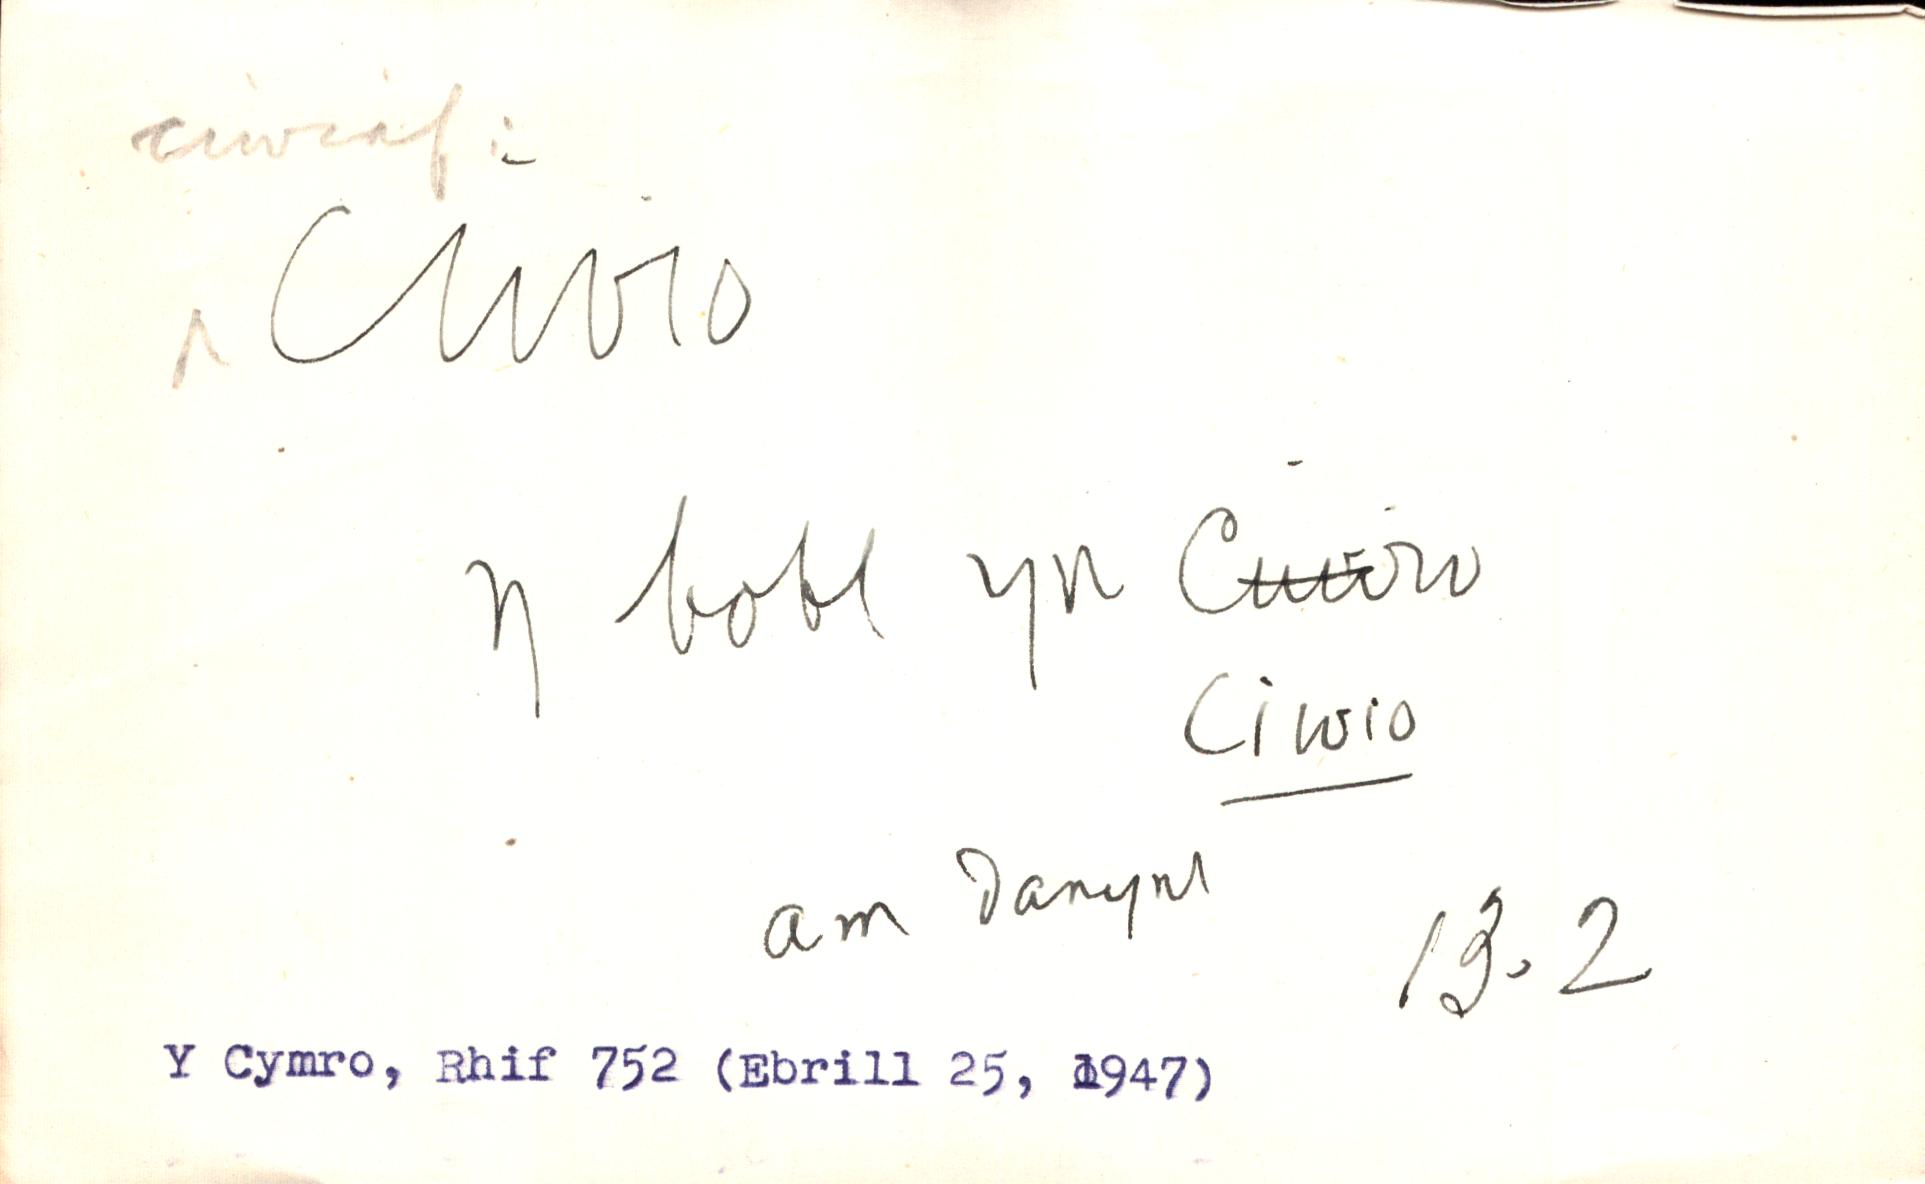 ciwiaf:
Ciwio
Y bobl yn Ciwio
Ciwio
am Danynt
13.2
Y Cymro, Rhif 752 (Ebrill 25, 1947)